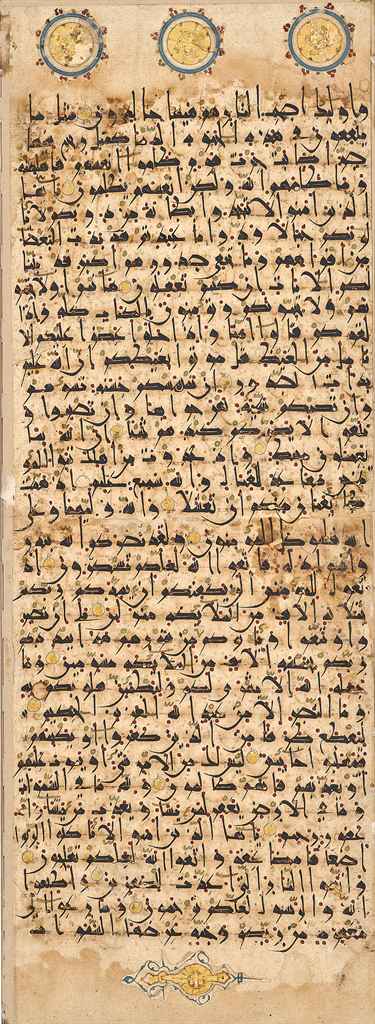 وأولئك أصحاب النار هم فيها خالدون مثل ما
ينفقون في هذه الحيوة الدنيا كمثل ريح فيها
صر أصابت حرث قوم ظلموا أنفسهم فأهلكته
وما ظلمهم الله ولكن أنفسهم يظلمون يا أيها
الذين آمنوا لا تتخذوا بطانة من دونكم لا يأ
لونكم خبالا ودوا ما عنتم قد بدت البغضاء
من أفواههم وما تخفي صدورهم أكبر قد بينا
لكم الآيات إن كنتم تعقلون ها أنتم أولاء تحبو
نهم ولا يحبونكم وتؤمنون بالكتاب كله وإذا
لقوكم قالوا آمنا وإذا خلوا عضوا عليكم الأ
نامل من الغيظ قل موتوا بغيظكم إن الله عليم
بذات الصدور إن تمسسكم حسنة تسؤهم
وإن تصبكم سيئة يفرحوا بها وإن تصبروا و
تتقوا لا يضركم كيدهم شيئا إن الله بما
يعملون محيط وإذ غدوت من أهلك تبوئ المؤ
منين مقاعد للقتال والله سميع عليم إذ همت
طائفتان منكم أن تفشلا والله وليهما وعلى
الله فليتوكل المؤمنون ولقد نصركم الله ببدر
وأنتم أذلة فاتقوا الله لعلكم تشكرون إذ
تقول للمؤمنين ألن يكفيكم أن يمدكم ربكم
بثلاثة آلاف من الملائكة منزلين بلى إن تصبروا
وتتقوا ويأتوكم من فورهم هذا يمددكم
ربكم بخمسة آلاف من الملائكة مسومين وما
جعله الله إلا بشرى لكم ولتطمئن قلوبكم به
وما النصر إلا من عند الله العزيز الحكيم
ليقطع طرفا من الذين كفروا أو يكبتهم
فينقلبوا خائبين ليس لك من الأمر شيء أو يتوب عليهم
أو يعذبهم فإنهم ظالمون ولله ما في السموات
وما في الأرض يغفر لمن يشاء ويعذب من يشاء والله
غفور رحيم يا أيها الذين آمنوا لا تأكلوا الربوا
أضعافا مضاعفة واتقوا الله لعلكم تفلحون
واتقوا النار التي أعدت للكافرين وأطيعوا
الله والرسول لعلكم ترحمون وسارعوا إلى
مغفرة من ربكم وجنة عرضها السموات